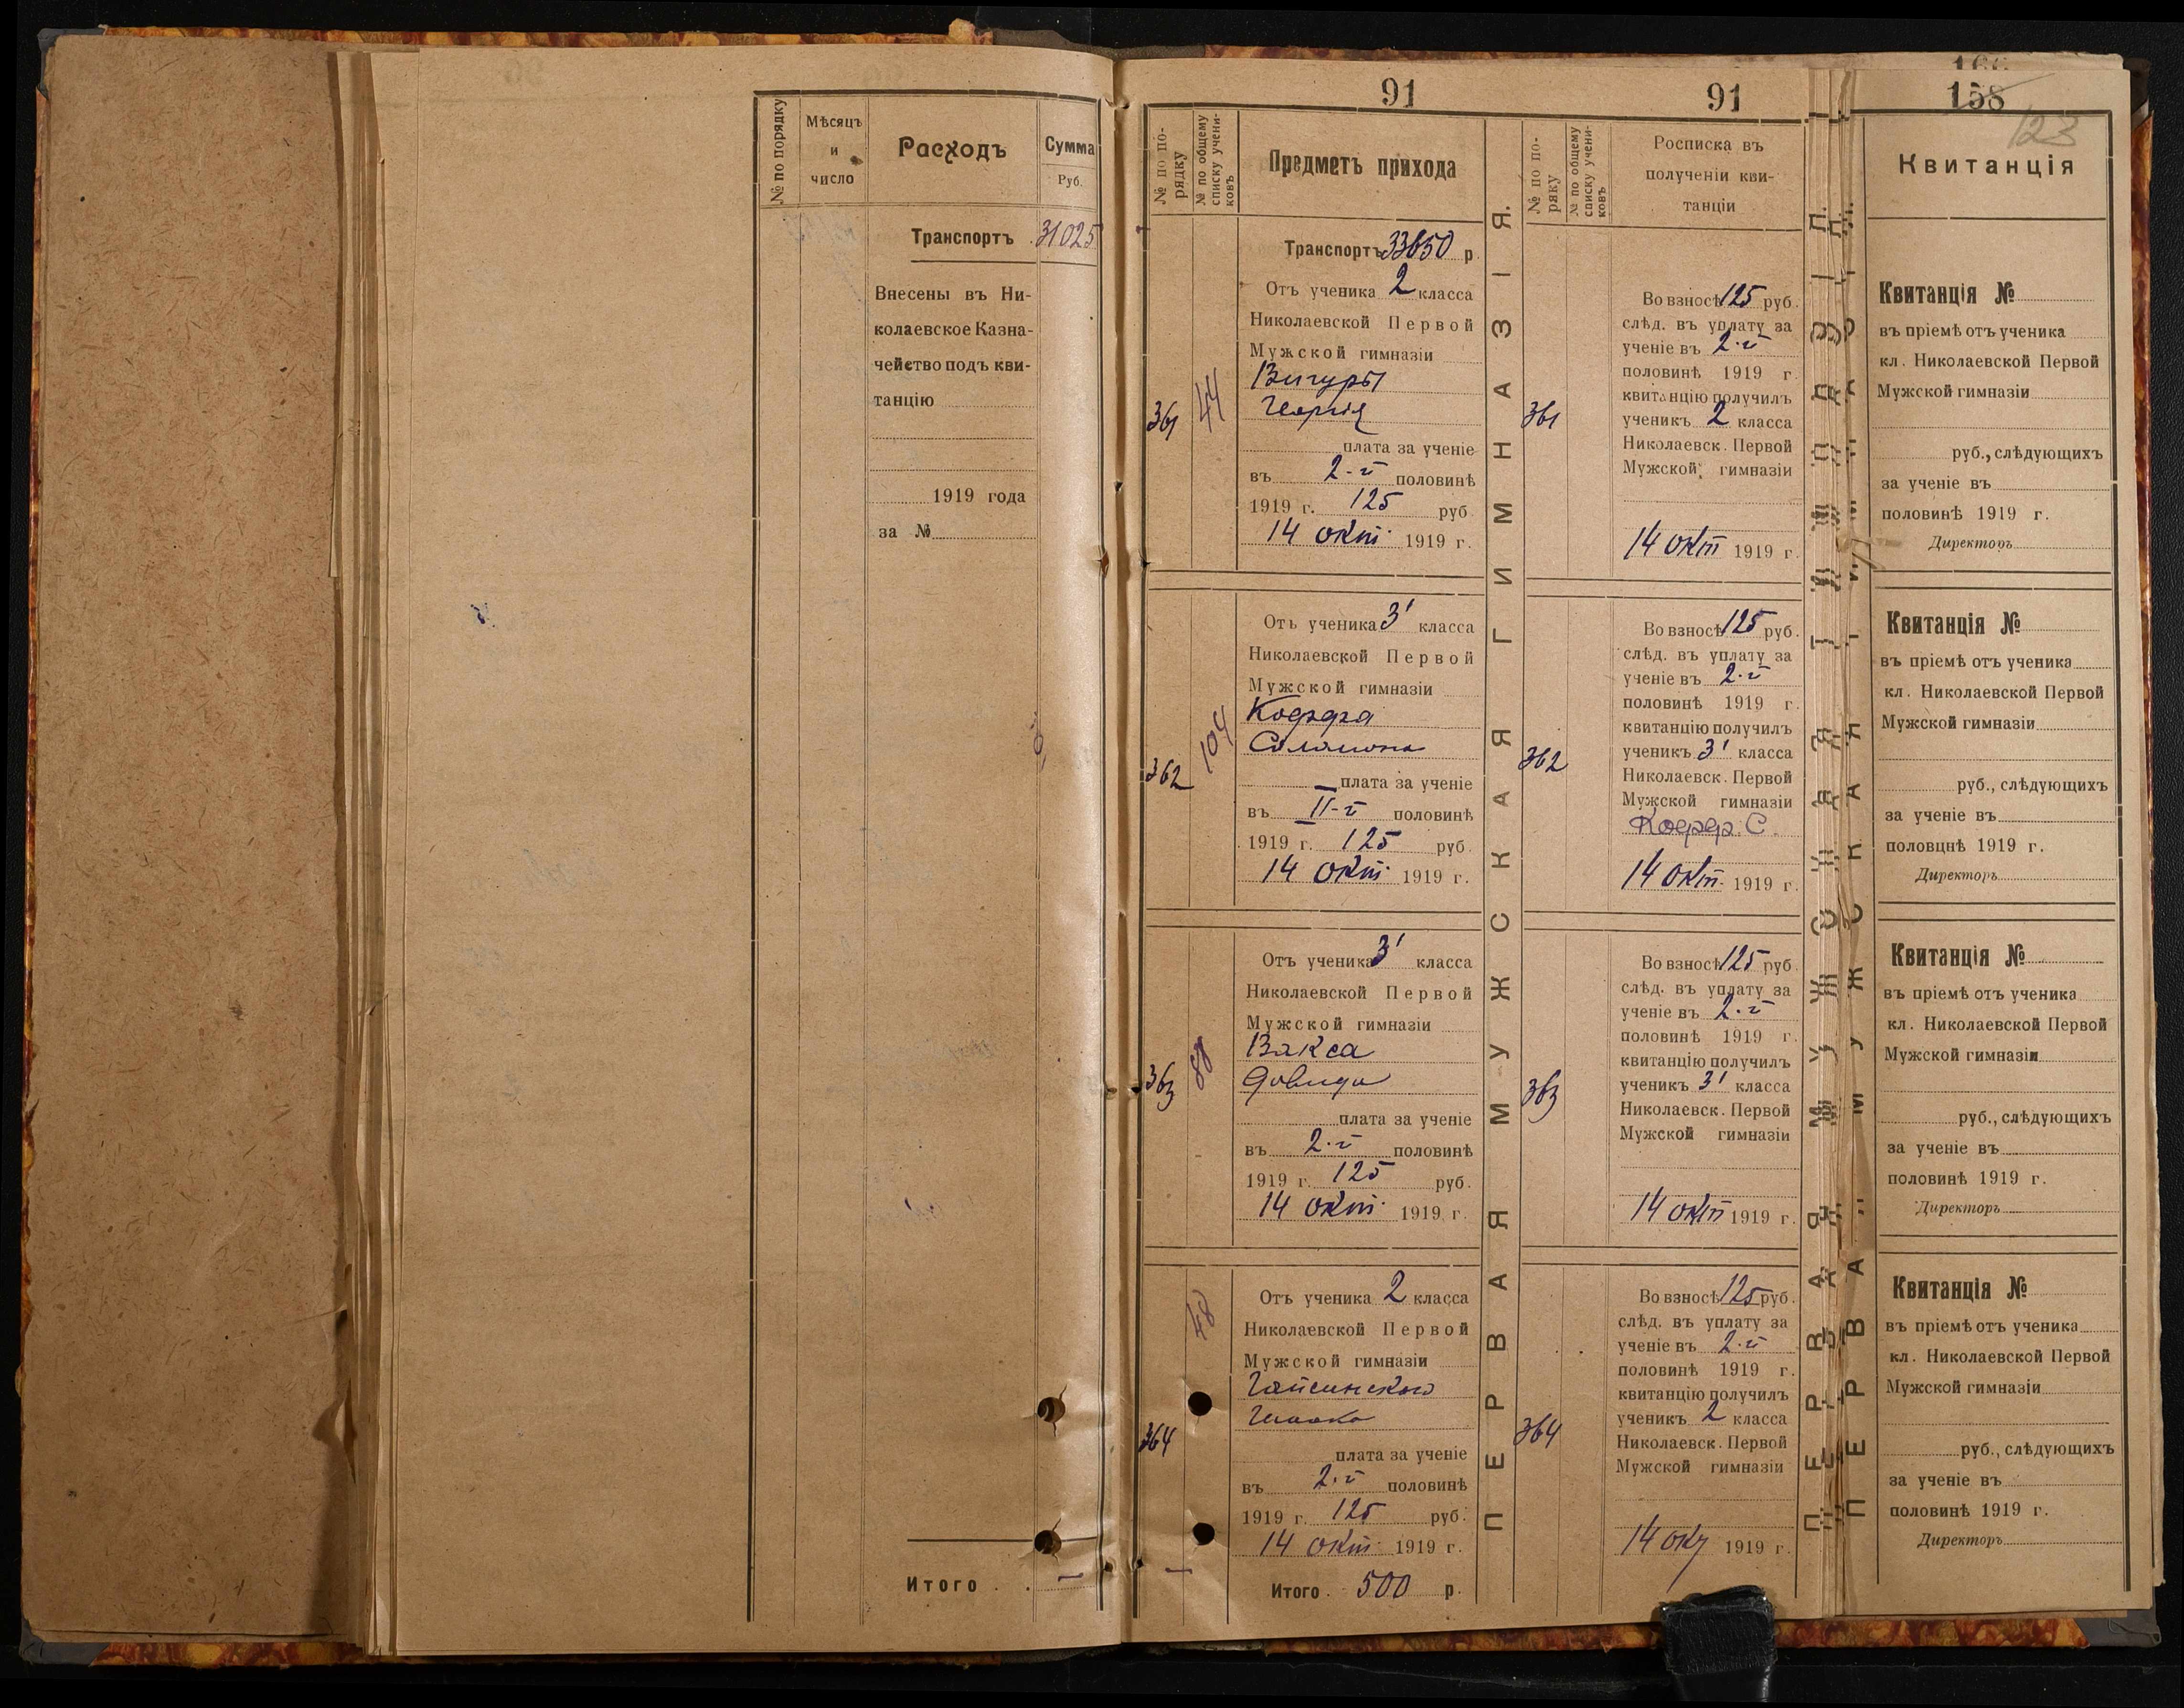 № по порядку
Мѣсяцъ
и
число
Расходъ
Сумма
Руб.
Транспортъ 31025
Внесены въ Ни-
колаевское Казна-
чейство подъ кви-
танцію
1919 года
за №
Итого
91
№ по по-
рядку
№ по общему
списку учени-
ковъ
Предметъ прихода
Транспортъ 33650 р.
361
44
Отъ ученика 2 класса
Николаевской Первой
Мужской гимназіи
Вигуры
Георгія
плата за ученіе
въ 2-й половинѣ
1919 г. 125 руб.
14 окт. 1919 г.
362
104
Отъ ученика 3' класса
Николаевской Первой
Мужской гимназіи
Коффа
Соломона
плата за ученіе
въ II-й половинѣ
1919 г. 125 руб.
14 окт. 1919 г.
363
88
Отъ ученика 3' класса
Николаевской Первой
Мужской гимназіи
Вакса
Давида
плата за ученіе
въ 2-й половинѣ
1919 г. 125 руб.
14 окт. 1919 г.
364
48
Отъ ученика 2 класса
Николаевской Первой
Мужской гимназіи
Гайсинского
плата за ученіе
въ 2-й половинѣ
1919 г. 125 руб.
14 окт. 1919 г.
Итого 500 р.
ПЕРВАЯ МУЖСКАЯ ГИМНАЗІЯ.
91
№ по по-
ряку
№ по общему
списку учени-
ковъ
Росписка въ
полученіи кви-
танціи
361
Во взносѣ 125 руб.
слѣд. въ уплату за
ученіе въ 2-й
половинѣ 1919 г.
квитанцію получилъ
ученикъ 2 класса
Николаевск. Первой
Мужской гимназіи
14 окт 1919 г.
362
Во взносѣ 125 руб.
слѣд. въ уплату за
ученіе въ 2-й
половинѣ 1919 г.
квитанцію получилъ
ученикъ 3' класса
Николаевск. Первой
Мужской гимназіи
Кофф. С.
14 окт. 1919 г.
363
Во взносѣ 125 руб.
слѣд. въ уплату за
ученіе въ 2-й
половинѣ 1919 г.
квитанцію получилъ
ученикъ 3' класса
Николаевск. Первой
Мужской гимназіи
14 окт 1919 г.
364
Во взносѣ 125 руб.
слѣд. въ уплату за
ученіе въ 2-й
половинѣ 1919 г.
квитанцію получилъ
ученикъ 2 класса
Николаевск. Первой
Мужской гимназіи
14 окт 1919 г.
158
123
Квитанція
Квитанція №
въ пріемѣ отъ ученика
кл. Николаевской Первой
Мужской гимназіи
руб., слѣдующихъ
за ученіе въ
половинѣ 1919 г.
Директоръ
Квитанція №
въ пріемѣ отъ ученика
кл. Николаевской Первой
Мужской гимназіи
руб., слѣдующихъ
за ученіе въ
половцнѣ 1919 г.
Директоръ
Квитанція №
въ пріемѣ отъ ученика
кл. Николаевской Первой
Мужской гимназіи
руб., слѣдующихъ
за ученіе въ
половинѣ 1919 г.
Директоръ
Квитанція №
въ пріемѣ отъ ученика
кл. Николаевской Первой
Мужской гимназіи
руб., слѣдующихъ
за ученіе въ
половинѣ 1919 г.
Директоръ